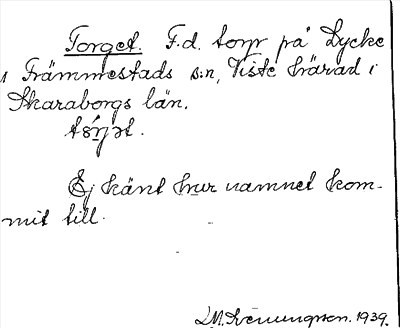 Torget. F.d. torp på Lycke
i Främmestads s:n, Viste härad i
Skaraborgs län.
Ej känt hur namnet kom-
mit till.
1939.